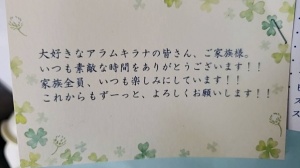 大好きなアラムキラナの皆さん、ご家族様。
いつも素敵な時間をありがとうございます!!
家族全員、いつも楽しみにしています!!
これからもずーっと、よろしくお願いします!!